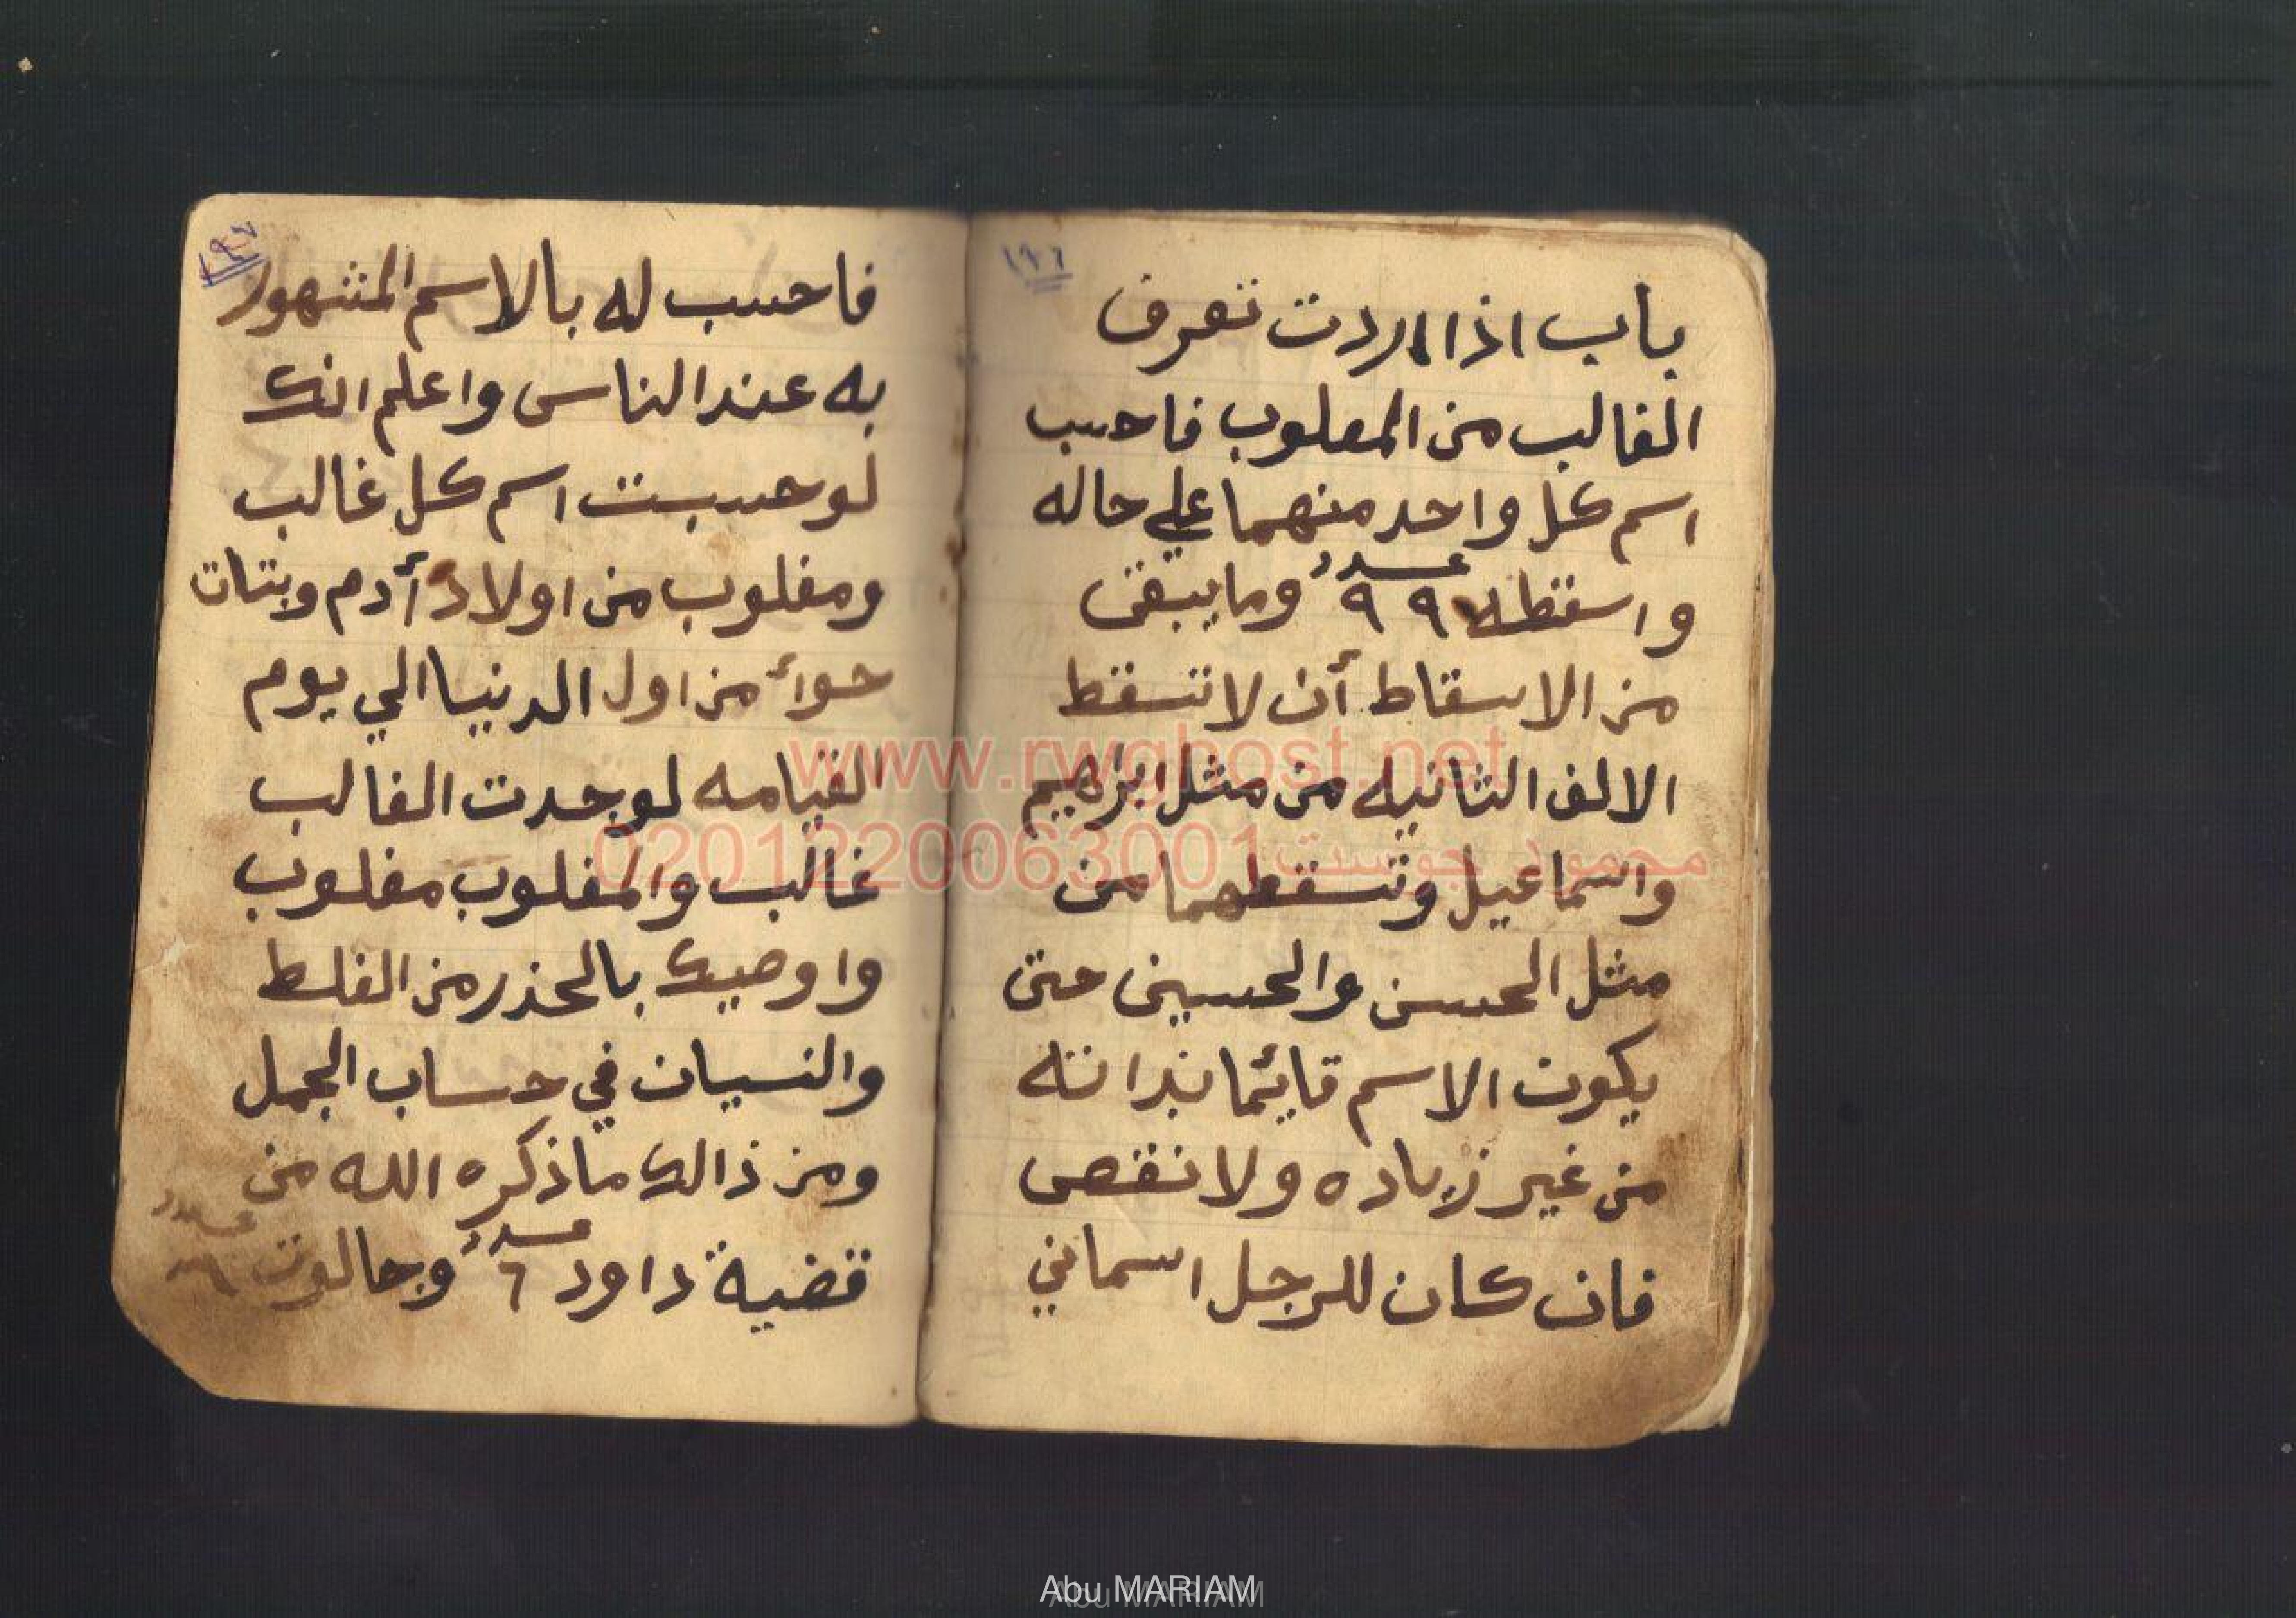 ١٩٦
باب اذا اردت تعرف
الغالب من المغلوب فاحسب
اسم كل واحد منهما علي حاله
واسقطه ٩ ٩ عدد وما يبقى
من الاسقاط أن لا تسقط
الالف الثانيه من مثل ابراهيم
واسماعيل وتسقطهما من
مثل الحسن والحسين حتى
يكون الاسم قائما بذاته
من غير زياده ولا نقص
فان كان للرجل اسماني
١٩٧
فاحسب له بالاسم المشهور
به عند الناس واعلم انك
لو حسبت اسم كل غالب
ومغلوب من اولاد أدم وبنات
حوأ من اول الدنيا الي يوم
القيامه لوجدت الغالب
غالب والمغلوب مغلوب
واوصيك بالحذر من الغلط
والنسيان في حساب الجمل
ومن ذالك ما ذكره الله من
قضية داود ٦ عدد وجالوت عدد
www.rwghost.net
محمود جوست 0201220063001
Abu MARIAM